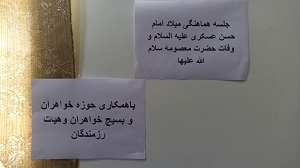 جلسه هماهنگی میلاد امام
حسن عسکری علیه السلام و
وفات حضرت معصومه سلام
الله علیها
باهمکاری حوزه خواهران
و بسیج خواهران وهیات
رزمندگان